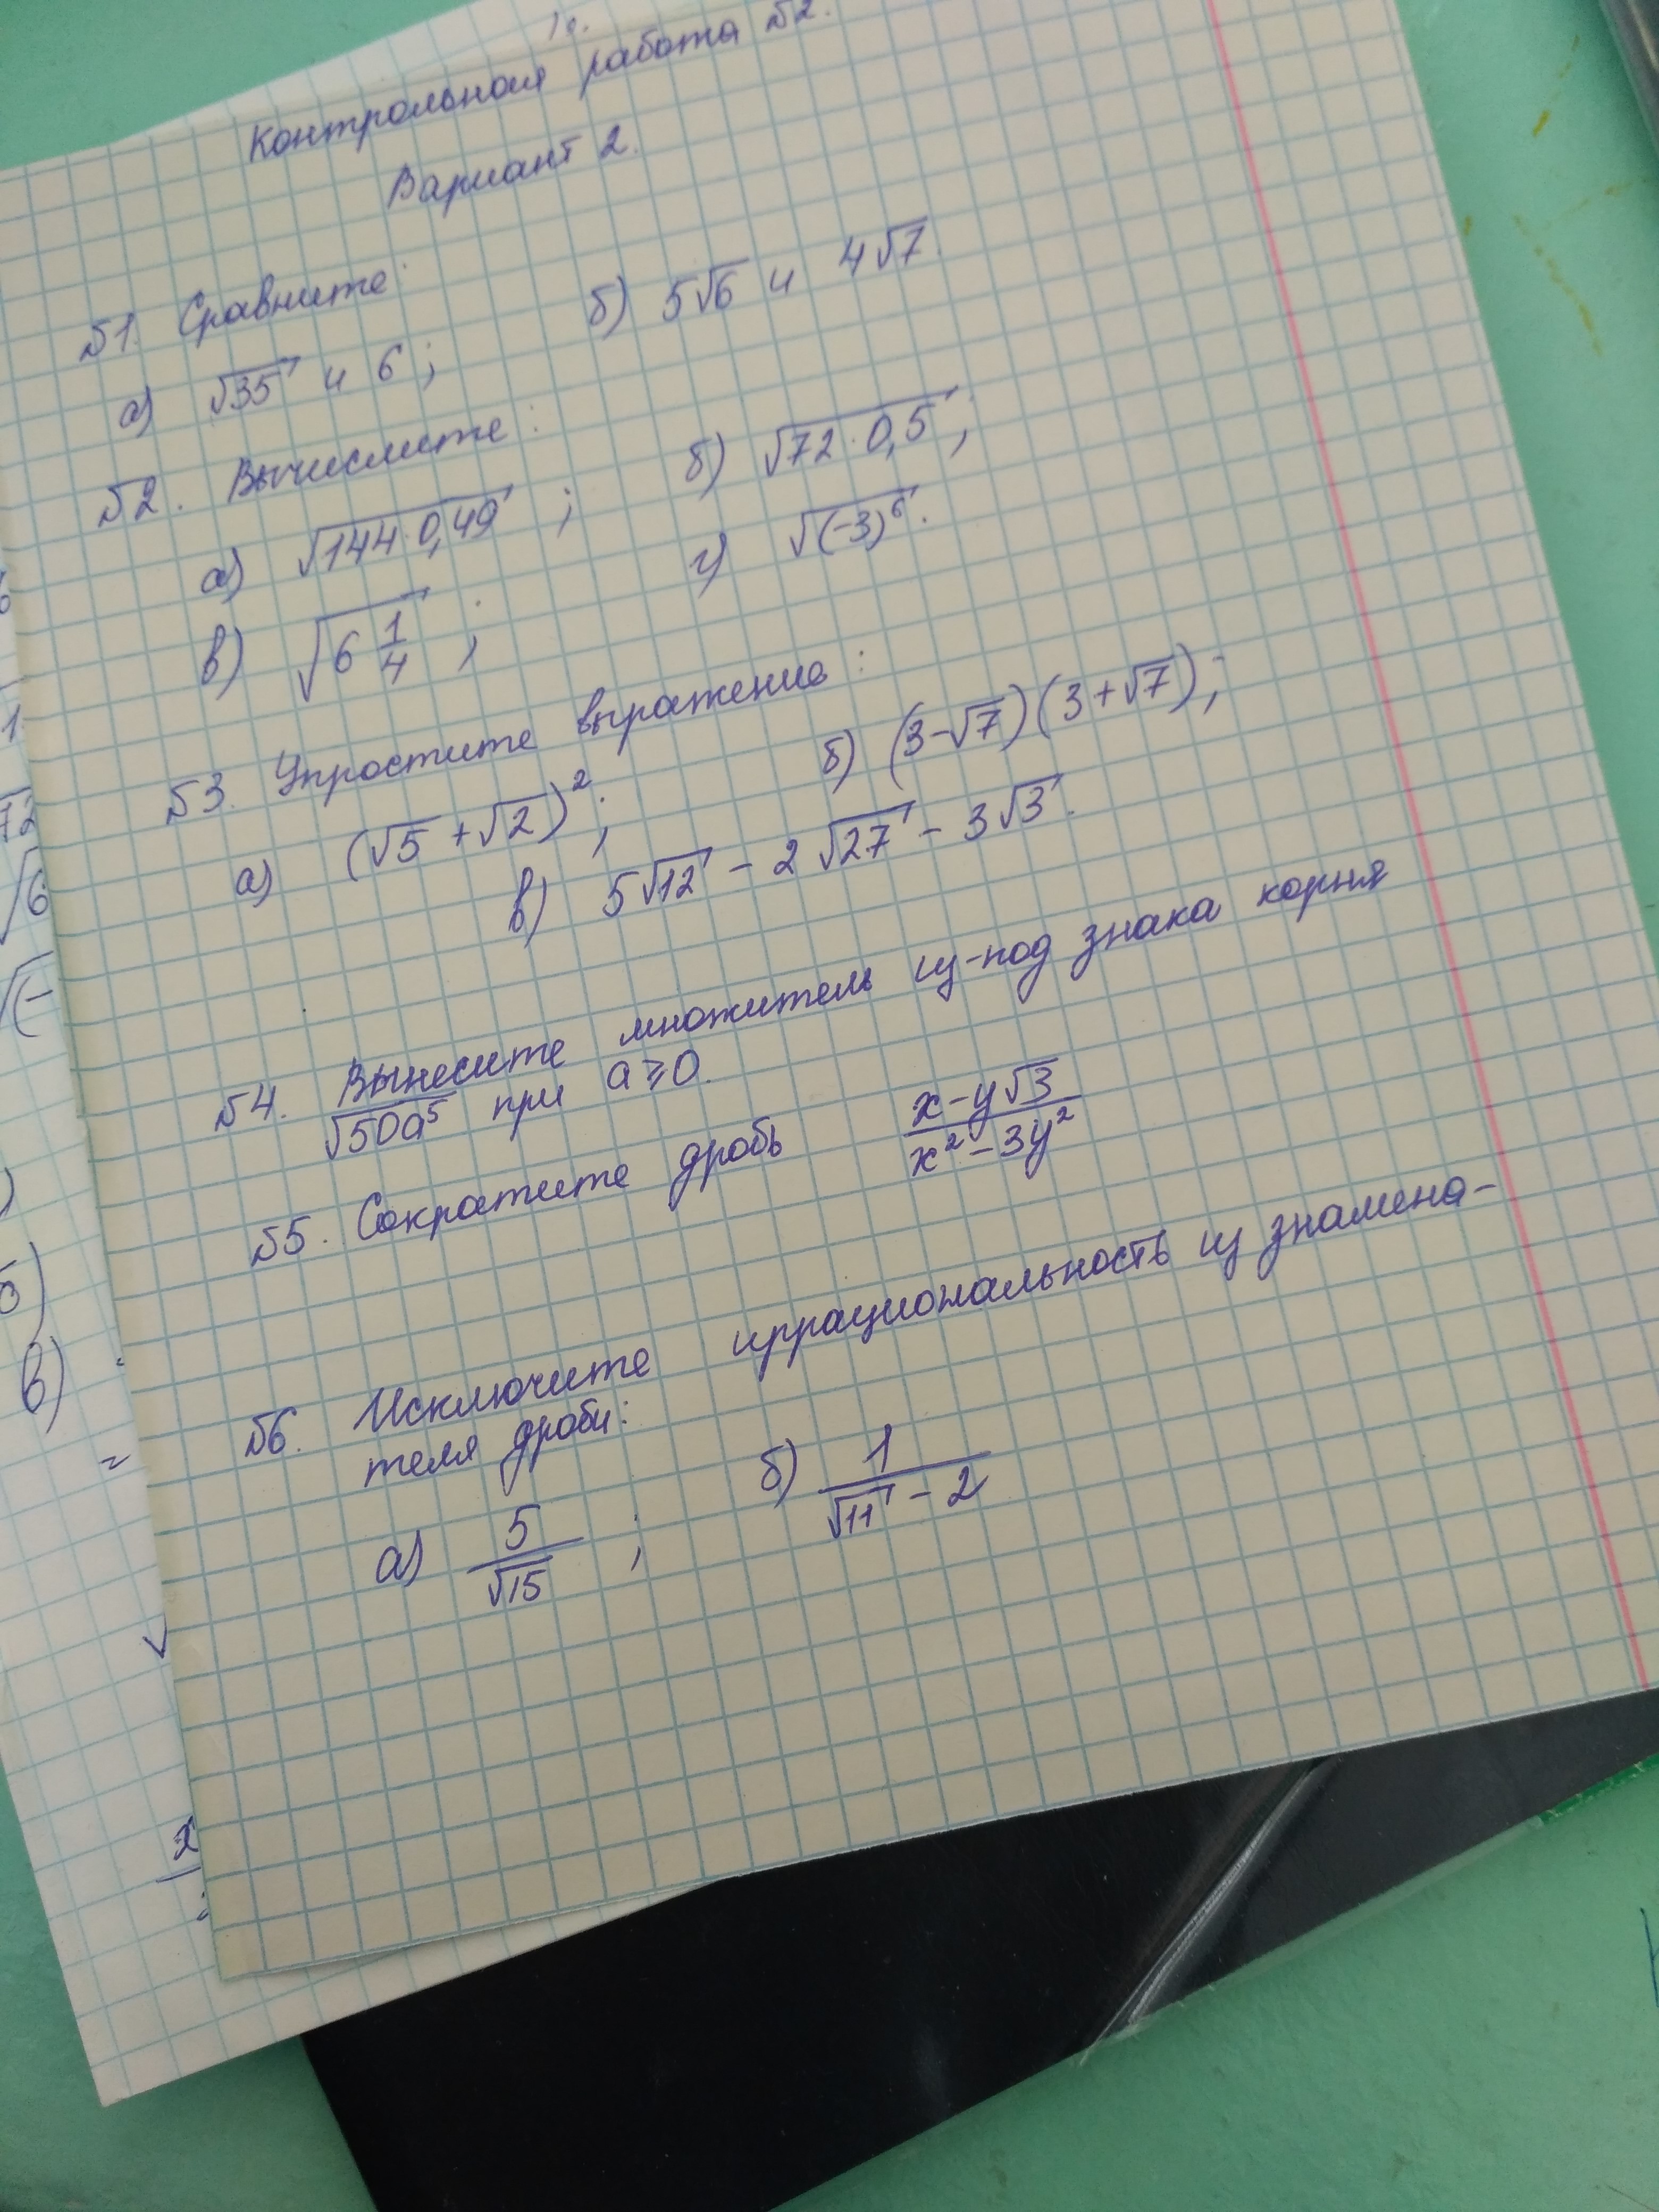 Контрольная работа №2.
Вариант 2.
№1. Сравните:
а) √35 и 6; б) 5√6 и 4√7.
№2. Вычислите:
а) √144·0,49; б) √72·0,5;
в) √6 1/4; г) √(-3)⁶.
№3. Упростите выражение:
а) (√5 + √2)²; б) (3-√7)(3+√7);
в) 5√12 - 2√27 - 3√3.
№4. Вынесите множитель из-под знака корня
√50a⁵ при a ≥ 0.
№5. Сократите дробь (x-y√3)/(x²-3y²)
№6. Исключите иррациональность из знамена-
теля дроби:
а) 5/√15; б) 1/(√11 - 2)